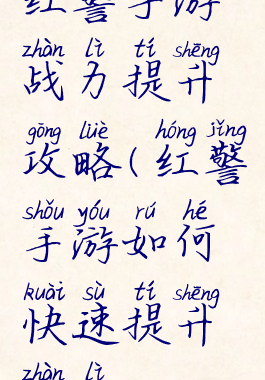 红警手游
zhàn lì tí shēng
战力提升
gōng lüè hóng jǐng
攻略(红警
shǒu yóu rú hé
手游如何
kuài sù tí shēng
快速提升
zhàn lì